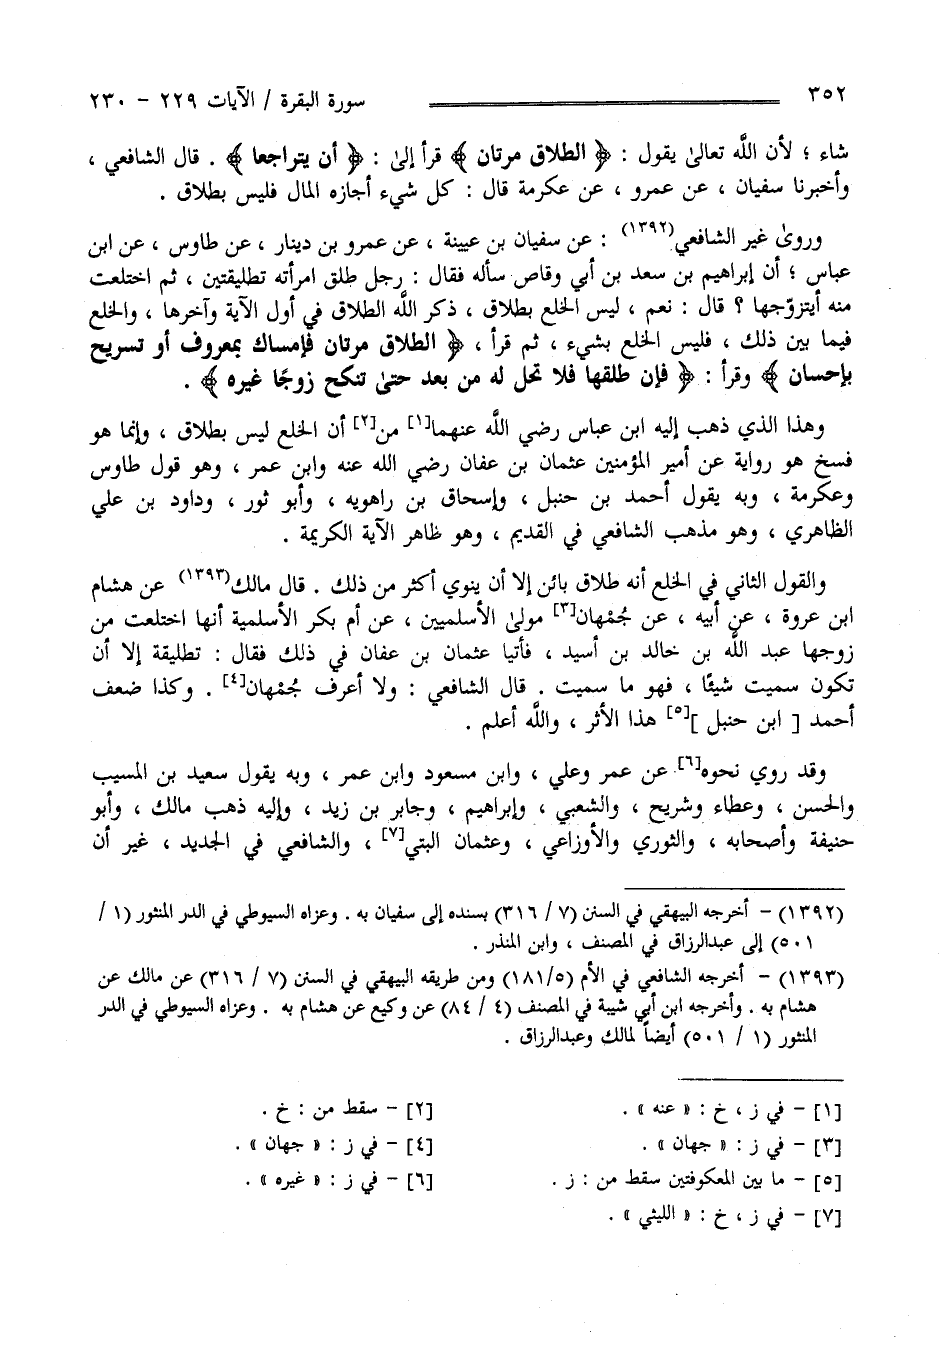 ٣٥٢ سورة البقرة / الآيات ٢٢٩ - ٢٣٠
شاء ؛ لأن اللَّه تعالىٰ يقول : ﴿ الطلاق مرتان ﴾ قرأ إلىٰ : ﴿ أن يتراجعا ﴾ . قال الشافعي ،
وأخبرنا سفيان ، عن عمرو ، عن عكرمة قال : كل شيء أجازه المال فليس بطلاق .
وروىٰ غير الشافعي(١٣٩٢) : عن سفيان بن عيينة ، عن عمرو بن دينار ، عن طاوس ، عن ابن
عباس ؛ أن إبراهيم بن سعد بن أبي وقاص سأله فقال : رجل طلق امرأته تطليقتين ، ثم اختلعت
منه أيتزوّجها ؟ قال : نعم ، ليس الخلع بطلاق ، ذكر اللَّه الطلاق في أول الآية وآخرها ، والخلع
فيما بين ذلك ، فليس الخلع بشيء ، ثم قرأ ، ﴿ الطلاق مرتان فإمساك بمعروف أو تسريح
بإحسان ﴾ وقرأ : ﴿ فإن طلقها فلا تحل له من بعد حتىٰ تنكح زوجًا غيره ﴾ .
وهذا الذي ذهب إليه ابن عباس رضي اللَّه عنهما[١] من[٢] أن الخلع ليس بطلاق ، وإنما هو
فسخ هو رواية عن أمير المؤمنين عثمان بن عفان رضي الله عنه وابن عمر ، وهو قول طاوس
وعكرمة ، وبه يقول أحمد بن حنبل ، وإسحاق بن راهويه ، وأبو ثور ، وداود بن علي
الظاهري ، وهو مذهب الشافعي في القديم ، وهو ظاهر الآية الكريمة .
والقول الثاني في الخلع أنه طلاق بائن إلا أن ينوي أكثر من ذلك . قال مالك(١٣٩٣) عن هشام
ابن عروة ، عن أبيه ، عن جُمْهان[٣] مولىٰ الأسلميين ، عن أم بكر الأسلمية أنها اختلعت من
زوجها عبد اللَّه بن خالد بن أسيد ، فأتيا عثمان بن عفان في ذلك فقال : تطليقة إلا أن
تكون سميت شيئًا ، فهو ما سميت . قال الشافعي : ولا أعرف جُمْهان[٤] . وكذا ضعف
أحمد [ ابن حنبل ][٥] هذا الأثر ، واللَّه أعلم .
وقد روي نحوه[٦] عن عمر وعلي ، وابن مسعود وابن عمر ، وبه يقول سعيد بن المسيب
والحسن ، وعطاء وشريح ، والشعبي ، وإبراهيم ، وجابر بن زيد ، وإليه ذهب مالك ، وأبو
حنيفة وأصحابه ، والثوري والأوزاعي ، وعثمان البتي[٧] ، والشافعي في الجديد ، غير أن
(١٣٩٢) - أخرجه البيهقي في السنن (٧ / ٣١٦) بسنده إلى سفيان به . وعزاه السيوطي في الدر المنثور (١ /
٥٠١) إلى عبدالرزاق في المصنف ، وابن المنذر .
(١٣٩٣) - أخرجه الشافعي في الأم (١٨١/٥) ومن طريقه البيهقي في السنن (٧ / ٣١٦) عن مالك عن
هشام به . وأخرجه ابن أبي شيبة في المصنف (٤ / ٨٤) عن وكيع عن هشام به . وعزاه السيوطي في الدر
المنثور (١ / ٥٠١) أيضاً لمالك وعبدالرزاق .
[١] - في ز ، خ : « عنه » . [٢] - سقط من : خ .
[٣] - في ز : « جهان » . [٤] - في ز : « جهان » .
[٥] - ما بين المعكوفتين سقط من : ز . [٦] - في ز : « غيره » .
[٧] - في ز ، خ : « الليثي » .